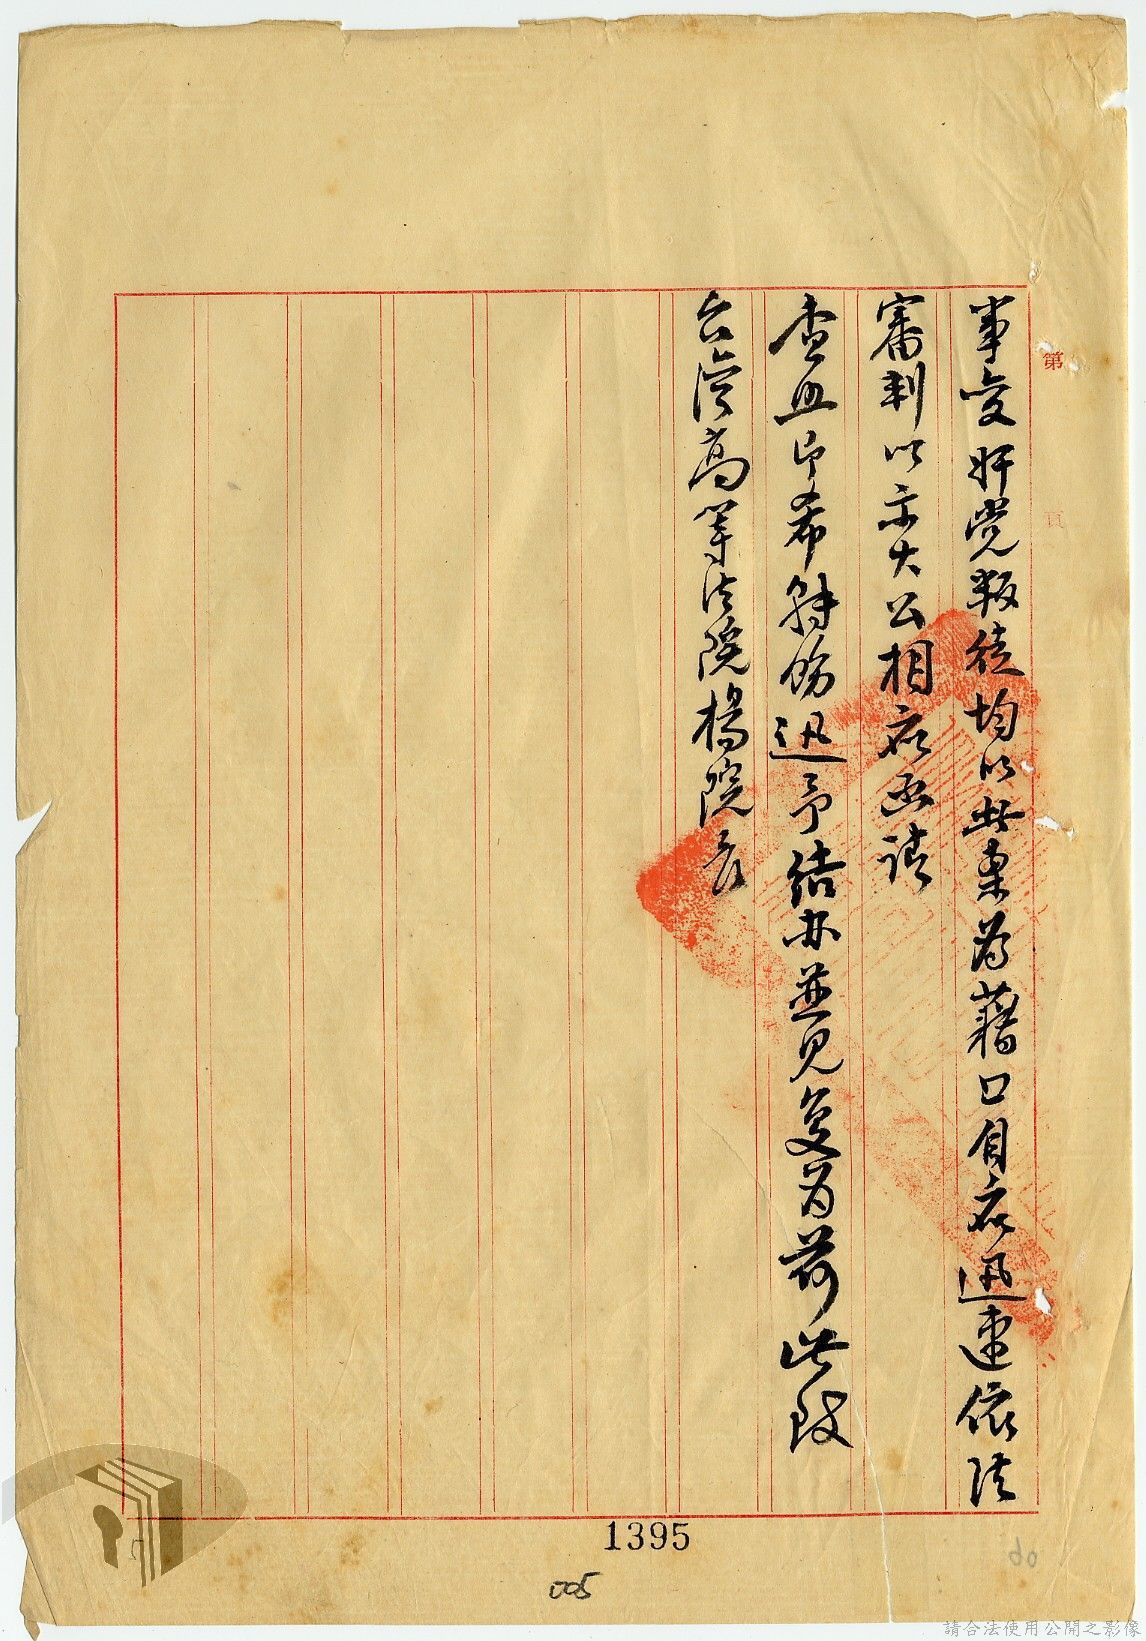 第
頁
事变奸党叛徒均以此案为藉口自应迅速依法
審判以示大公相应函请
查照即希特饬迅予结办並见复为荷此致
台湾高等法院楊院长
1395
005
06
請合法使用公開之影像